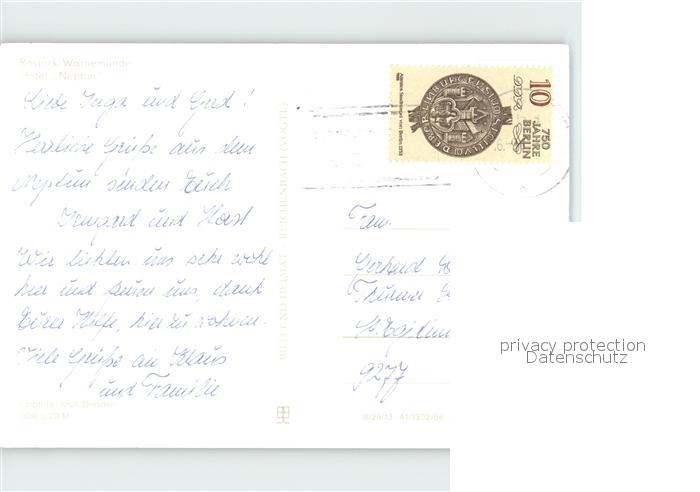 Rostock-Warnemünde
Hotel „Neptun"
Liebe Inga und Gerd!
Herzliche Grüße aus dem
Neptun senden Euch
Irmgard und Horst
Wir fühlen uns sehr wohl
hier und freuen uns, dank
Eurer Hilfe, hier zu wohnen.
Viele Grüße an Klaus
und Familie
Dresden
BILD UND HEIMAT REICHENBACH (VOGTL)
A1/1302/86
10
DDR
750
JAHRE
BERLIN
Fam.
Gerhard
Thümer
St. Egidien
9277
privacy protection
Datenschutz